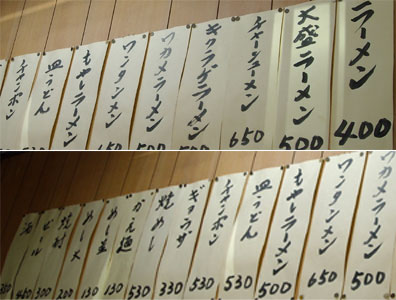 ラーメン 400
大盛ラーメン 500
チャーシューメン 650
キクラゲラーメン 500
ワカメラーメン
ワンタンメン
もやしラーメン
皿うどん
チャンポン
ワカメラーメン 500
ワンタンメン 650
もやしラーメン 500
皿うどん 530
チャンポン 530
ギョウザ 330
焼めし 530
かえ玉 130
めし並 130
めし大 200
焼豚 300
ビール
酒